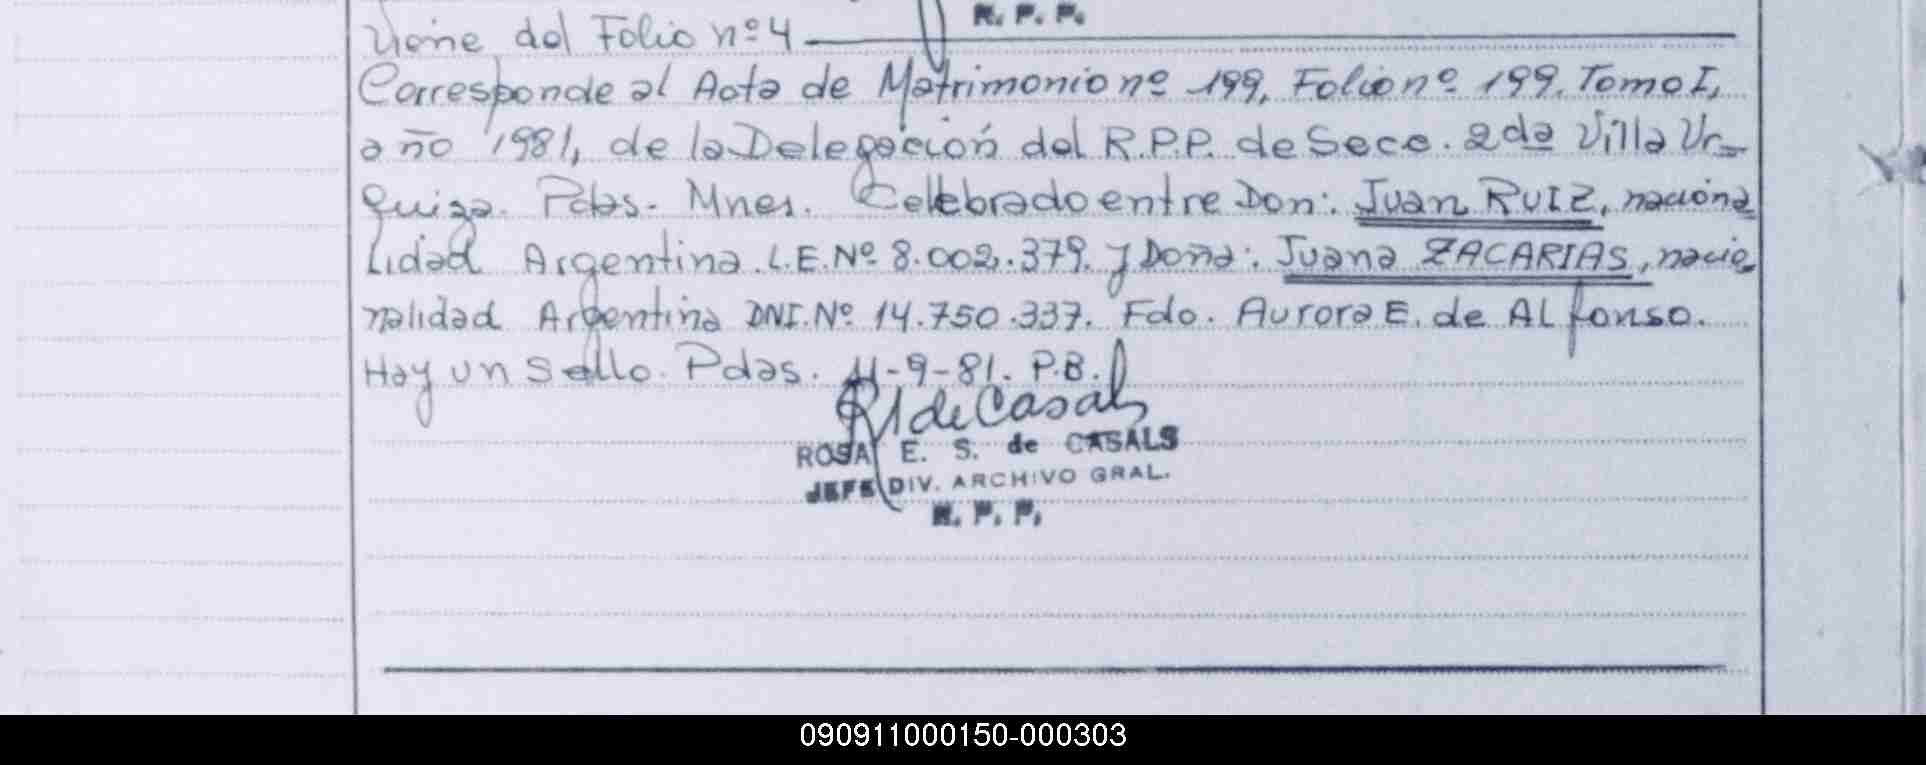 R. P. P.
Viene del Folio nº 4
Corresponde al Acta de Matrimonio nº 199, Folio nº 199. Tomo I,
año 1981, de la Delegación del R.P.P. de Secc. 2da Villa Ur-
quiza. Pdas. Mnes. Celebrado entre Don: Juan RUIZ, naciona
lidad Argentina. L.E. Nº 8.002.379. y Doña: Juana ZACARIAS, nacio-
nalidad Argentina DNI. Nº 14.750.337. Fdo. Aurora E. de ALfonso.
Hay un Sello. Pdas. 11-9-81. P.B.
de Casals
ROSA E. S. de CASALS
JEFE DIV. ARCHIVO GRAL.
R. P. P.
090911000150-000303